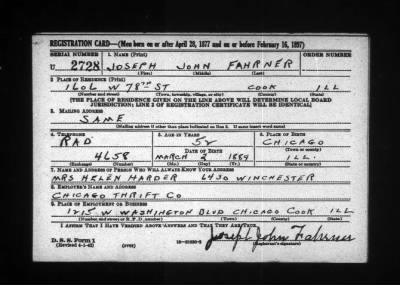 REGISTRATION CARD—(Men born on or after April 28, 1877 and on or before February 16, 1897)
SERIAL NUMBER 1. NAME (Print) ORDER NUMBER
U 2728 JOSEPH JOHN FAHRNER
(First) (Middle) (Last)
2. PLACE OF RESIDENCE (Print)
1606 W 78TH ST COOK ILL
(Number and street) (Town, township, village, or city) (County) (State)
[THE PLACE OF RESIDENCE GIVEN ON THE LINE ABOVE WILL DETERMINE LOCAL BOARD
JURISDICTION; LINE 2 OF REGISTRATION CERTIFICATE WILL BE IDENTICAL]
3. MAILING ADDRESS
SAME
[Mailing address if other than place indicated on line 2. If same insert word same]
4. TELEPHONE 5. AGE IN YEARS 6. PLACE OF BIRTH
RAD CHICAGO
DATE OF BIRTH (Town or county)
4658 MARCH 2 ILL.
(Exchange) (Number) (Mo.) (Day) (Yr.) (State or country)
7. NAME AND ADDRESS OF PERSON WHO WILL ALWAYS KNOW YOUR ADDRESS
MRS HELEN HARDER 6430 WINCHESTER
8. EMPLOYER'S NAME AND ADDRESS
CHICAGO THRIFT CO
9. PLACE OF EMPLOYMENT OR BUSINESS
1215 W WASHINGTON BLVD CHICAGO COOK ILL
(Number and street or R. F. D. number) (Town) (County) (State)
I AFFIRM THAT I HAVE VERIFIED ABOVE ANSWERS AND THAT THEY ARE TRUE.
D. S. S. Form 1 Joseph John Fahrner
(Revised 4-1-42) (over) (Registrant's signature)